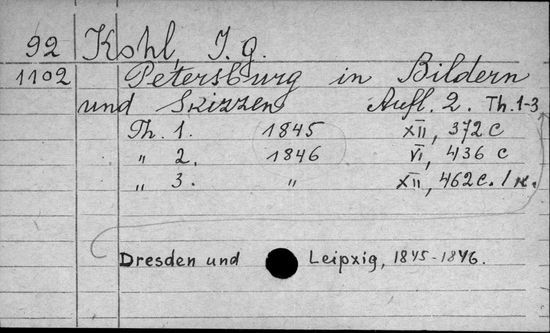 92 Kohl, I. G.
1102 Petersburg in Bildern
und Skizzen Aufl. 2. Th. 1-3
Th. 1. 1845 XII, 372 c
" 2. 1846 VI, 436 c
" 3. " XII, 462 c. /
Dresden und Leipzig, 1845-1846.